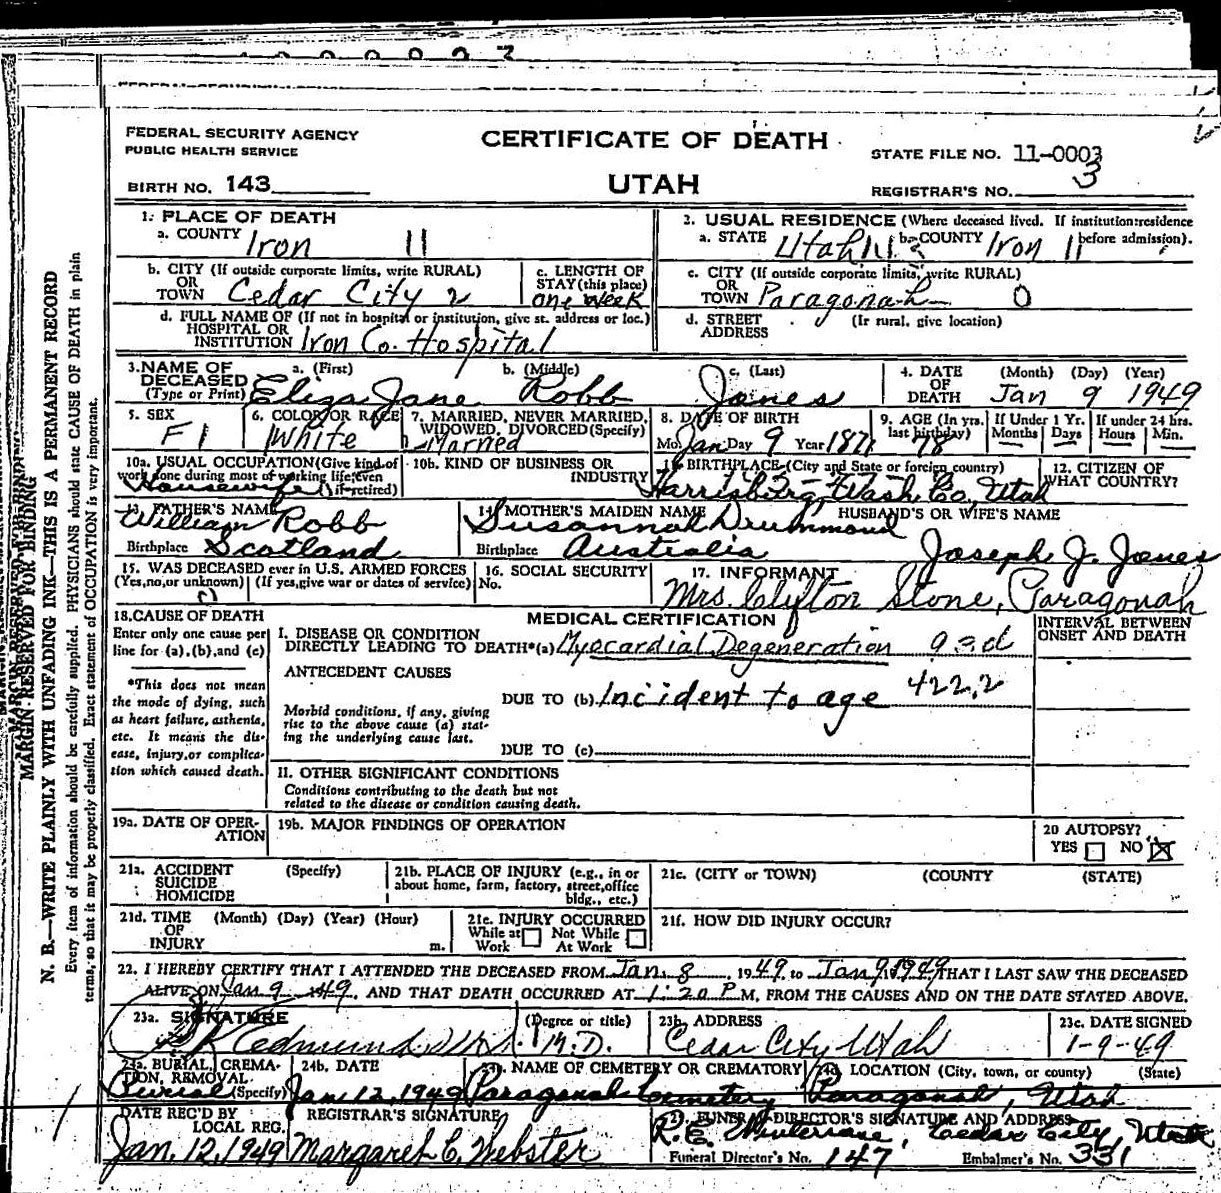 FEDERAL SECURITY AGENCY
PUBLIC HEALTH SERVICE
CERTIFICATE OF DEATH
STATE FILE NO. 11-0003
BIRTH NO. 143
UTAH
REGISTRAR'S NO. 3
1. PLACE OF DEATH
a. COUNTY Iron 11
2. USUAL RESIDENCE (Where deceased lived. If institution: residence before admission).
a. STATE Utah b. COUNTY Iron 11
b. CITY (If outside corporate limits, write RURAL)
OR
TOWN Cedar City 2
c. LENGTH OF
STAY (this place)
one week
c. CITY (If outside corporate limits, write RURAL)
OR
TOWN Paragonah 0
d. FULL NAME OF (If not in hospital or institution, give st. address or loc.)
HOSPITAL OR
INSTITUTION Iron Co. Hospital
d. STREET (If rural, give location)
ADDRESS
3. NAME OF a. (First) b. (Middle) c. (Last)
DECEASED
(Type or Print) Eliza Jane Robb Jones
4. DATE (Month) (Day) (Year)
OF
DEATH Jan 9 1949
5. SEX
F 1
6. COLOR OR RACE
White
7. MARRIED, NEVER MARRIED,
WIDOWED, DIVORCED (Specify)
Married
8. DATE OF BIRTH
Mo. Jan Day 9 Year 1871
9. AGE (In yrs. last birthday)
78
If Under 1 Yr.
Months Days
If under 24 hrs.
Hours Min.
10a. USUAL OCCUPATION (Give kind of
work done during most of working life, even
if retired)
Housewife
10b. KIND OF BUSINESS OR
INDUSTRY
11. BIRTHPLACE (City and State or foreign country)
Harrisburg, Wash. Co, Utah
12. CITIZEN OF
WHAT COUNTRY?
13. FATHER'S NAME
William Robb
Birthplace Scotland
14. MOTHER'S MAIDEN NAME
Susannah Drummond
Birthplace Australia
HUSBAND'S OR WIFE'S NAME
Joseph J. Jones
15. WAS DECEASED ever in U.S. ARMED FORCES
(Yes, no, or unknown) (If yes, give war or dates of service)
16. SOCIAL SECURITY
No.
17. INFORMANT
Mrs. Clifton Stone, Paragonah
18. CAUSE OF DEATH
Enter only one cause per
line for (a), (b), and (c)
*This does not mean
the mode of dying, such
as heart failure, asthenia,
etc. It means the dis-
ease, injury, or complica-
tion which caused death.
MEDICAL CERTIFICATION
INTERVAL BETWEEN
ONSET AND DEATH
I. DISEASE OR CONDITION
DIRECTLY LEADING TO DEATH* (a) Myocardial Degeneration 93d
ANTECEDENT CAUSES
DUE TO (b) Incident to age 422.2
Morbid conditions, if any, giving
rise to the above cause (a) stat-
ing the underlying cause last.
DUE TO (c)
II. OTHER SIGNIFICANT CONDITIONS
Conditions contributing to the death but not
related to the disease or condition causing death.
19a. DATE OF OPER-
ATION
19b. MAJOR FINDINGS OF OPERATION
20 AUTOPSY?
YES NO
21a. ACCIDENT (Specify)
SUICIDE
HOMICIDE
21b. PLACE OF INJURY (e.g., in or
about home, farm, factory, street, office
bldg., etc.)
21c. (CITY or TOWN) (COUNTY) (STATE)
21d. TIME (Month) (Day) (Year) (Hour)
OF
INJURY m.
21e. INJURY OCCURRED
While at Not While
Work At Work
21f. HOW DID INJURY OCCUR?
22. I HEREBY CERTIFY THAT I ATTENDED THE DECEASED FROM Jan. 8, 1949 to Jan 9, 1949 THAT I LAST SAW THE DECEASED
ALIVE ON Jan 9 1949, AND THAT DEATH OCCURRED AT 1:20 P M, FROM THE CAUSES AND ON THE DATE STATED ABOVE.
23a. SIGNATURE (Degree or title)
Edmunds M.D.
23b. ADDRESS
Cedar City Utah
23c. DATE SIGNED
1-9-49
24a. BURIAL, CREMA-
TION, REMOVAL
(Specify) Burial
24b. DATE
Jan 12, 1949
NAME OF CEMETERY OR CREMATORY
Paragonah Cemetery
LOCATION (City, town, or county) (State)
Paragonah, Utah
DATE REC'D BY
LOCAL REG.
Jan. 12, 1949
REGISTRAR'S SIGNATURE
Margaret C. Webster
FUNERAL DIRECTOR'S SIGNATURE AND ADDRESS
Cedar City, Utah
Funeral Director's No. 147 Embalmer's No. 331
MARGIN RESERVED FOR BINDING
N. B.—WRITE PLAINLY WITH UNFADING INK—THIS IS A PERMANENT RECORD
Every item of information should be carefully supplied. PHYSICIANS should state CAUSE OF DEATH in plain
terms, so that it may be properly classified. Exact statement of OCCUPATION is very important.